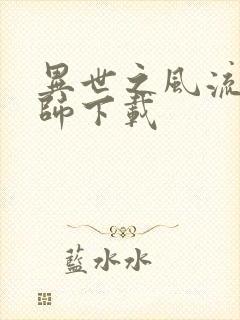 異世之風流
師下載
藍水水